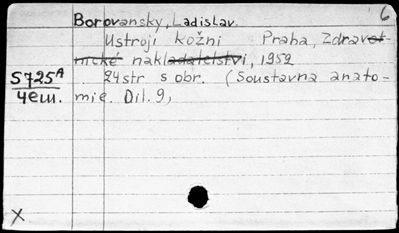 6
Borovansky, Ladislav.
Ustrojí kožní Praha, Zdravot-
nické nakladatelstvi, 1952
5725A 24 str s obr. (Soustavna anato-
4em. mie. Dil. 9,
X